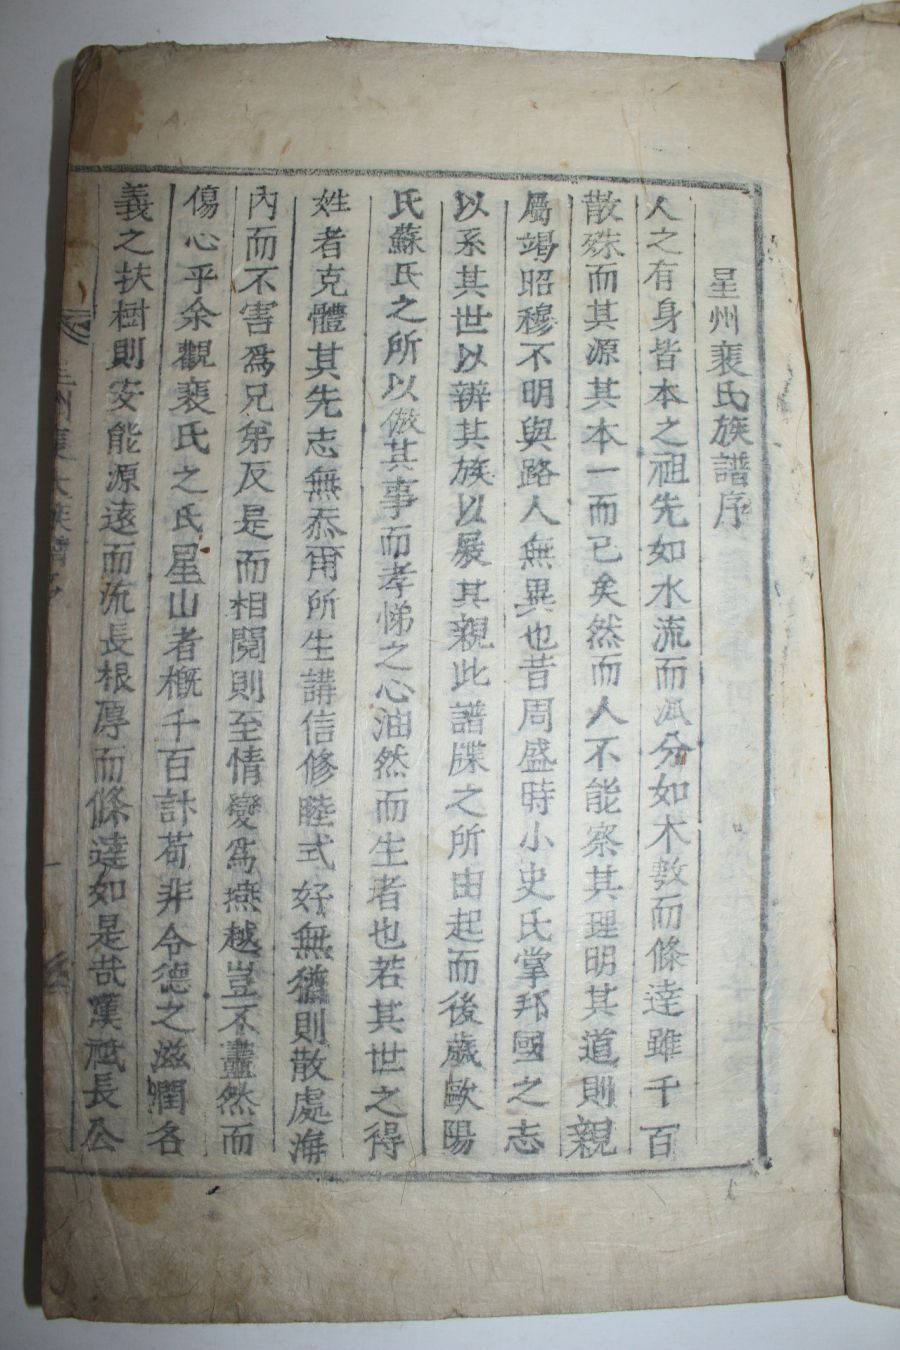 星州裵氏族譜序
人之有身皆本之祖先如水流而派分如木敷而條達雖千百
散殊而其源其本一而已矣然而人不能察其理明其道則親
屬竭昭穆不明與路人無異也昔周盛時小史氏掌邦國之志
以系其世以辨其族以展其親此譜牒之所由起而後歲歐陽
氏蘇氏之所以倣其事而孝悌之心油然而生者也若其世之得
姓者克體其先志無忝爾所生講信修睦式好無猶則散處海
內而不害爲兄弟反是而相鬩則至情變爲燕越豈不衋然而
傷心乎余觀裵氏之氏星山者槪千百計苟非令德之滋潤各
義之扶樹則安能源遠而流長根厚而條達如是哉漢祗長公
星州裵氏族譜序